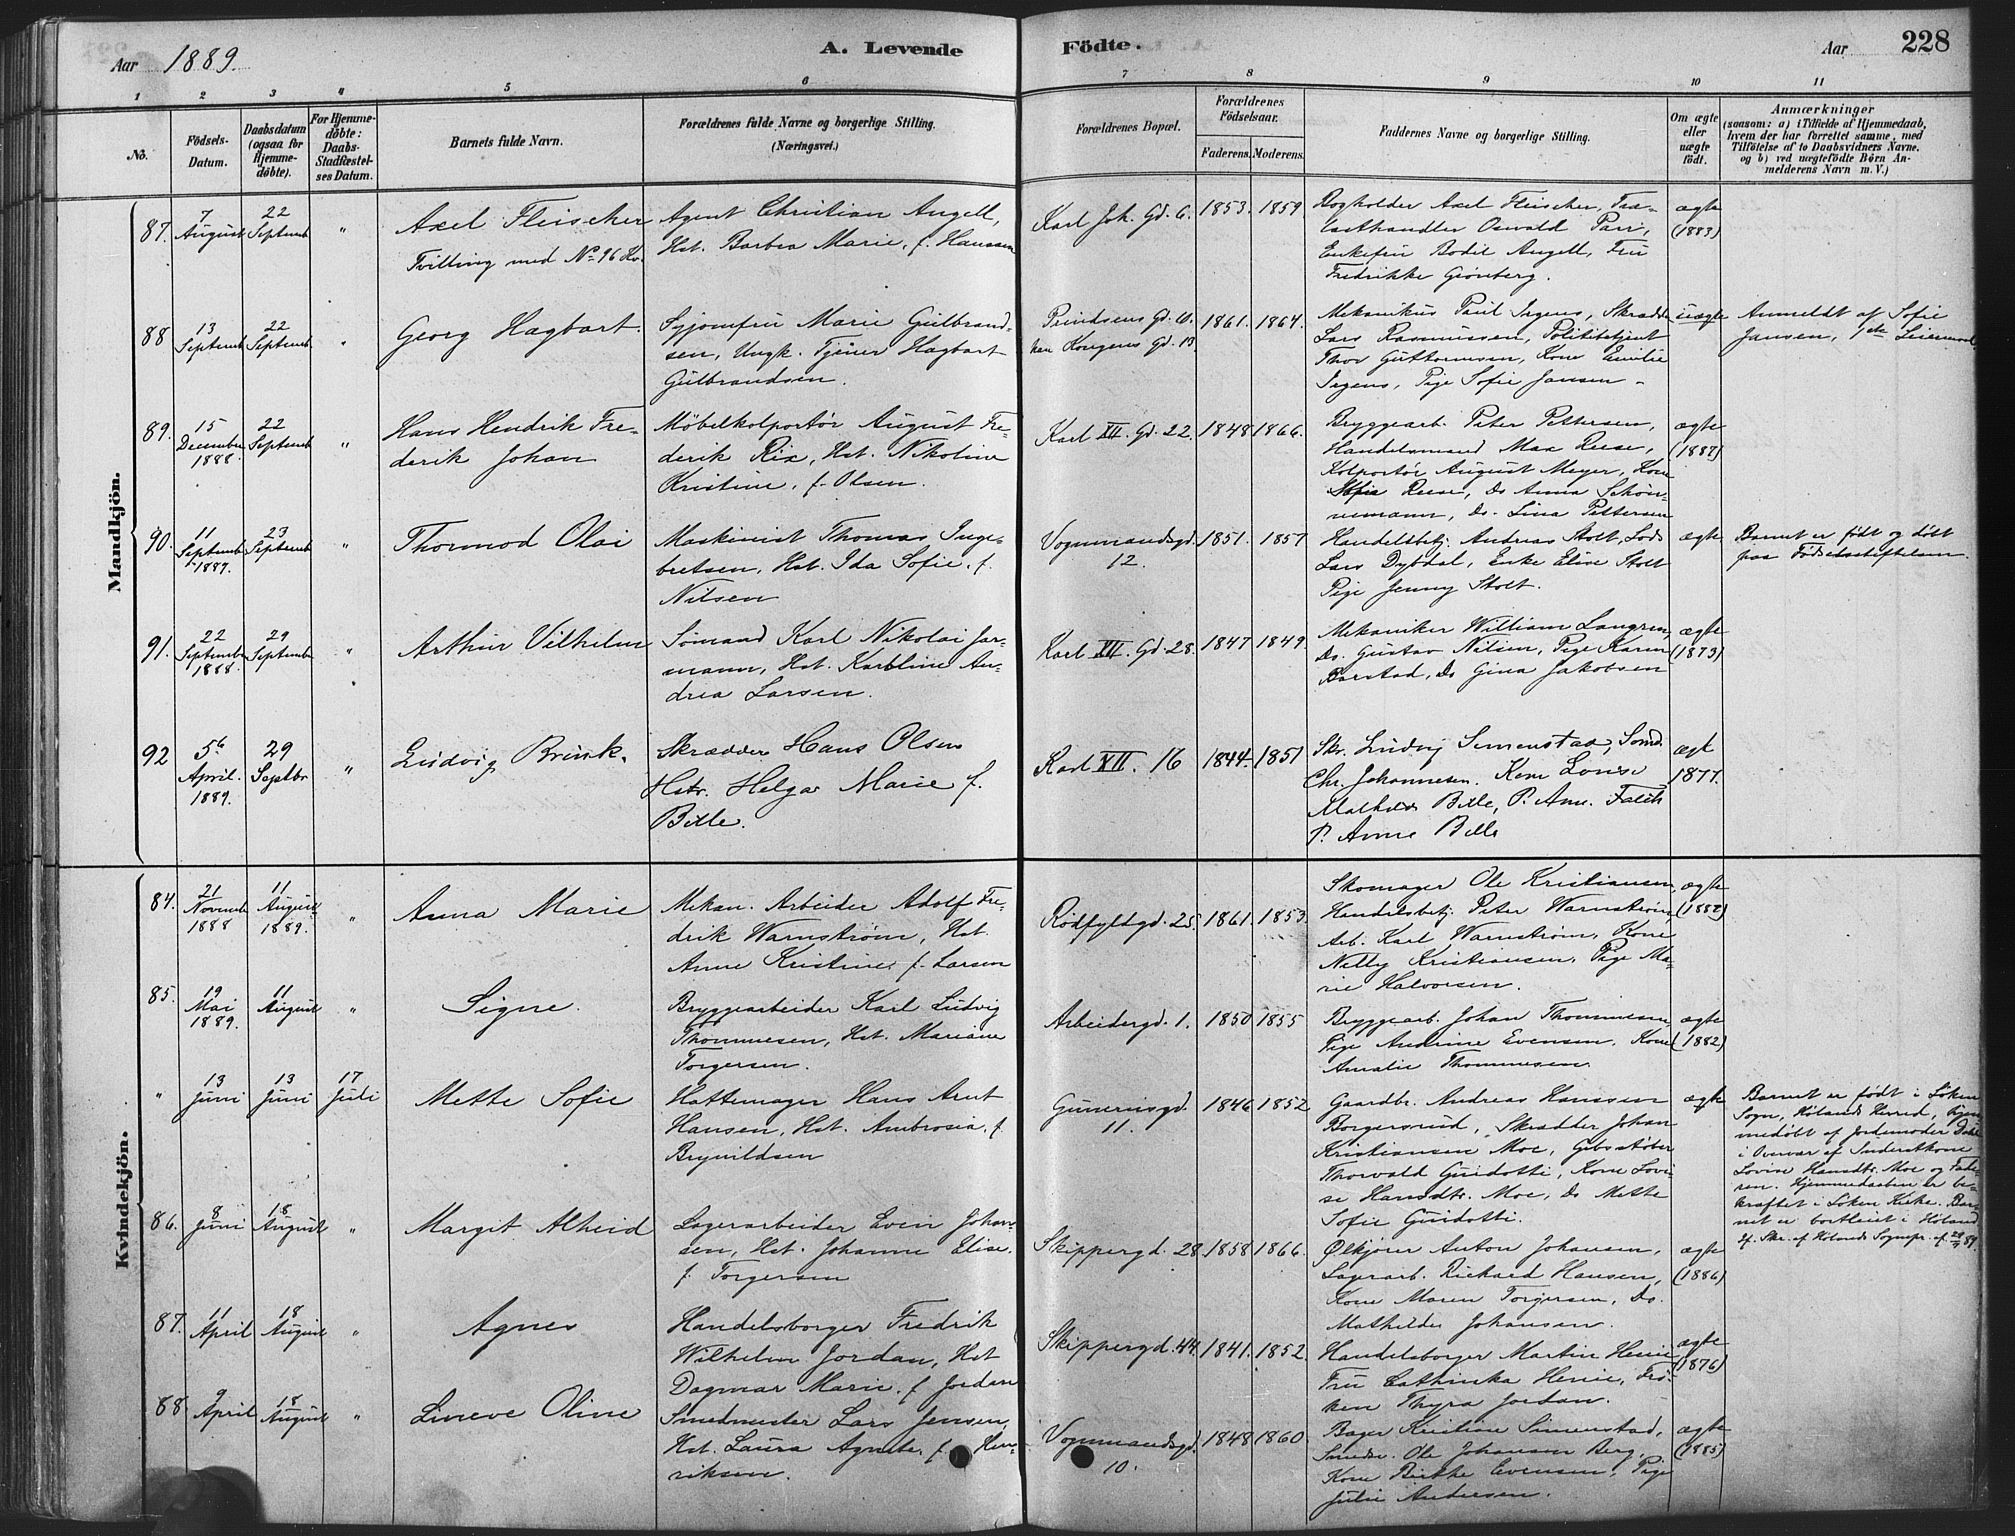 Aar 1889. A. Levende Födte. Aar 228
1 2 3 4 5 6 7 8 9 10 11
No.
Födsels-
Datum.
Daabsdatum
(ogsaa for
Hjemme-
døbte).
For Hjemme-
døbte:
Daabs-
Stadfæstel-
ses Datum.
Barnets fulde Navn.
Forældrenes fulde Navne og borgerlige Stilling.
(Næringsvei.)
Forældrenes Bopæl.
Forældrenes
Födselsaar.
Faderens. Moderens.
Faddernes Navne og borgerlige Stilling.
Om ægte
eller
uægte
født.
Anmærkninger
(saasom: a) i Tilfælde af Hjemmedaab,
hvem der har forrettet samme, med
Tilföielse af to Daabsvidners Navne.
og b) ved uægtefödte Börn An-
melderens Navn m. V.)
Mandkjön.
87. 7 August 22 Septemb "
Axel Fleischer
Tvilling med No 96 Kv.
Agent Christian Angell,
Hst. Barbra Marie, f. Hansen
Karl Joh. Gd. 6. 1853. 1859
Axel Fleischer,
Oswald Parr,
Enkefru Bodil Angell, Fru
Fredrikke Grønberg.
ægte
(1883)
88 13 Septemb 22 Septemb "
Georg Hagbart.
Syjomfru Marie Gulbrand-
sen, Ungk. Tjener Hagbart
Gulbrandsen.
Prindsens Gd. 10.
han Kongens Gd. 13
1861. 1864.
Mekanikus Paul Irgens, Skrædder
Lars Rasmussen, Politibetjent
Thor Guttormsen, Kone Emilie
Irgens, Pige Sofie Jansen
uægte
Anmeldt af Sofie
Jansen, 1ste Leiermaal
89. 15 December 1888. 22 Septemb "
Hans Hendrik Fre-
derik Johan
Møbelkolportør August Fre-
derik Rix, Hst. Nikoline
Kristine, f. Olsen.
Karl XII. Gd. 22. 1848 1866.
Bryggearb. Peter Pettersen,
Handelsmand Max Reese,
Kolportør August Meyer, Kone
Sofie Reese, Do Anna Schön-
nemann, Do. Lina Pettersen
ægte
(1887)
90. 11 Septemb 1887. 23 Septemb "
Thormod Olai
Maskinist Thomas Inge-
bretsen, Hst. Ida Sofie, f.
Nilsen
Vognmandsgd.
12.
1851. 1857
Handelsbetj. Andreas Stolt, Lods
Lars Dybdal, Enke Elise Stolt
Pige Jenny Stolt.
ægte
Barnet er født og døbt
paa Fødselsstiftelsen.
91. 22 Septembr 1888. 29 Septembr "
Arthur Vilhelm
Sømand Karl Nikolai Jar-
mann, Hst. Karoline An-
drea Larsen.
Karl XII. Gd. 28. 1847 1849.
Mekaniker William Langren,
Do. Gustav Nilsen, Pige Karen
Barstad, Do Gina Jakobsen
ægte
(1873)
92 5te April. 1889. 29 Septbr "
Ludvig Brink.
Skrædder Hans Olsen
Hstr. Helga Marie f.
Bille.
Karl XII. 16 1844. 1851
Skr. Ludvig Simenstad, Sømd.
Chr. Johannesen. Kone Louise
Mathilde Bille, P. Ane. Falch
P. Anne Bille
ægt
1877.
Kvindekjön.
84. 21 Novemb 1888 11 August 1889. "
Anna Marie
Mekan. Arbeider Adolf Fre-
drik Warnstrøm, Hst.
Anne Kristine, f. Larsen
Rødfyldgd. 25. 1861. 1853.
Skomager Ole Kristiansen,
Handelsbetj. Peter Warnstrøm
Arb. Karl Warnstrøm, Kone
Nelly Kristiansen, Pige Ma-
rie Halvorsen.
ægte
(1882)
85. 19 Mai 1889. 11 August "
Signe.
Bryggearbeider Karl Ludvig
Thommesen, Hst. Mariane
Torgersen.
Arbeidergd. 1. 1850 1855
Bryggearb. Johan Thommesen,
Pige Andrine Evensen, Kone
Amalie Thommesen
ægte
(1882)
" 13 Juni 13 Juni 17 Juli
Mette Sofie
Hattemager Hans Arnt
Hansen, Hst. Ambrosia, f.
Brynildsen
Gunerusgd.
11.
1846 1852
Gaardbr. Andreas Hansen
Borgersrud, Skrædder Johan
Kristiansen Moe, Gibsstøber
Thorvald Guidotti, Kone Lovi-
se Hansdtr. Moe, Do Mette
Sofie Guidotti.
ægte
Barnet er født i Løken
Sogn, Hølands Herred, hjem-
medøbt af Jordemoder Dahl
i Overvær af Inderstkone
Lovise Hansdtr. Moe og Fade-
ren. Hjemmedaaben er be-
kræftet i Løken Kirke. Bar-
net er bortleiet i Høland
cf. Skr. af Hølands Sognepr. af 29/7 89.
86. 8 Juni 18 August "
Margit Alheid
Lagerarbeider Even Johan-
sen, Hst. Johanne Elise.
f. Torgersen
Skippergd. 28. 1858 1866.
Ølkjører Anton Johansen,
Lagerarb. Rickard Hansen,
Kone Maren Torgersen, Do.
Mathilde Johansen.
ægte
(1886)
87. 11 April 18 August "
Agnes
Handelsborger Fredrik
Wilhelm Jordan, Hst
Dagmar Marie, f. Jordan
Skippergd. 44. 1841. 1852.
Handelsborger Martin Henie
Fru Cathinka Henie, Frø-
ken Thyra Jordan.
ægte
(1876)
88. 9 April 18 August "
Lineve Oline
Smedmester Lars Jensen,
Hst. Laura Agnete, f. Hen-
riksen.
Vognmandsgd.
10.
1848 1860
Bager Kristian Simenstad,
Smedsv. Ole Johansen Berg,
Kone Birthe Evensen, Pige
Julie Andersen.
ægte
(1885)